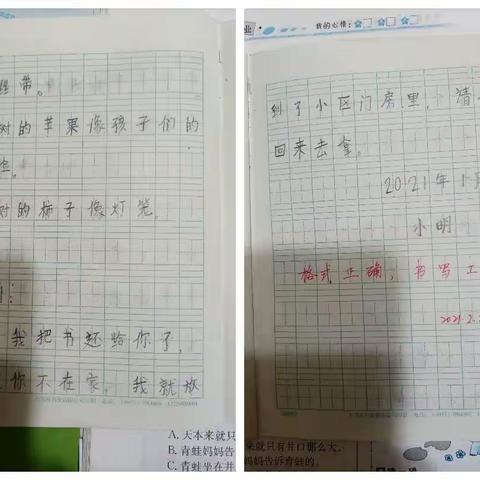 带。
树的苹果像孩子们的
树的柿子像灯笼。
我把书还给你了,
你不在家,我就放
A.天本来就只
B.青蛙妈妈告
C.青蛙坐在井
我的心情:
到了小区门房里,请
回来去拿。
2021年1月
小明
格式正确,书写工
2021.2.
来就只有井口那么大。
妈妈告诉青蛙的。